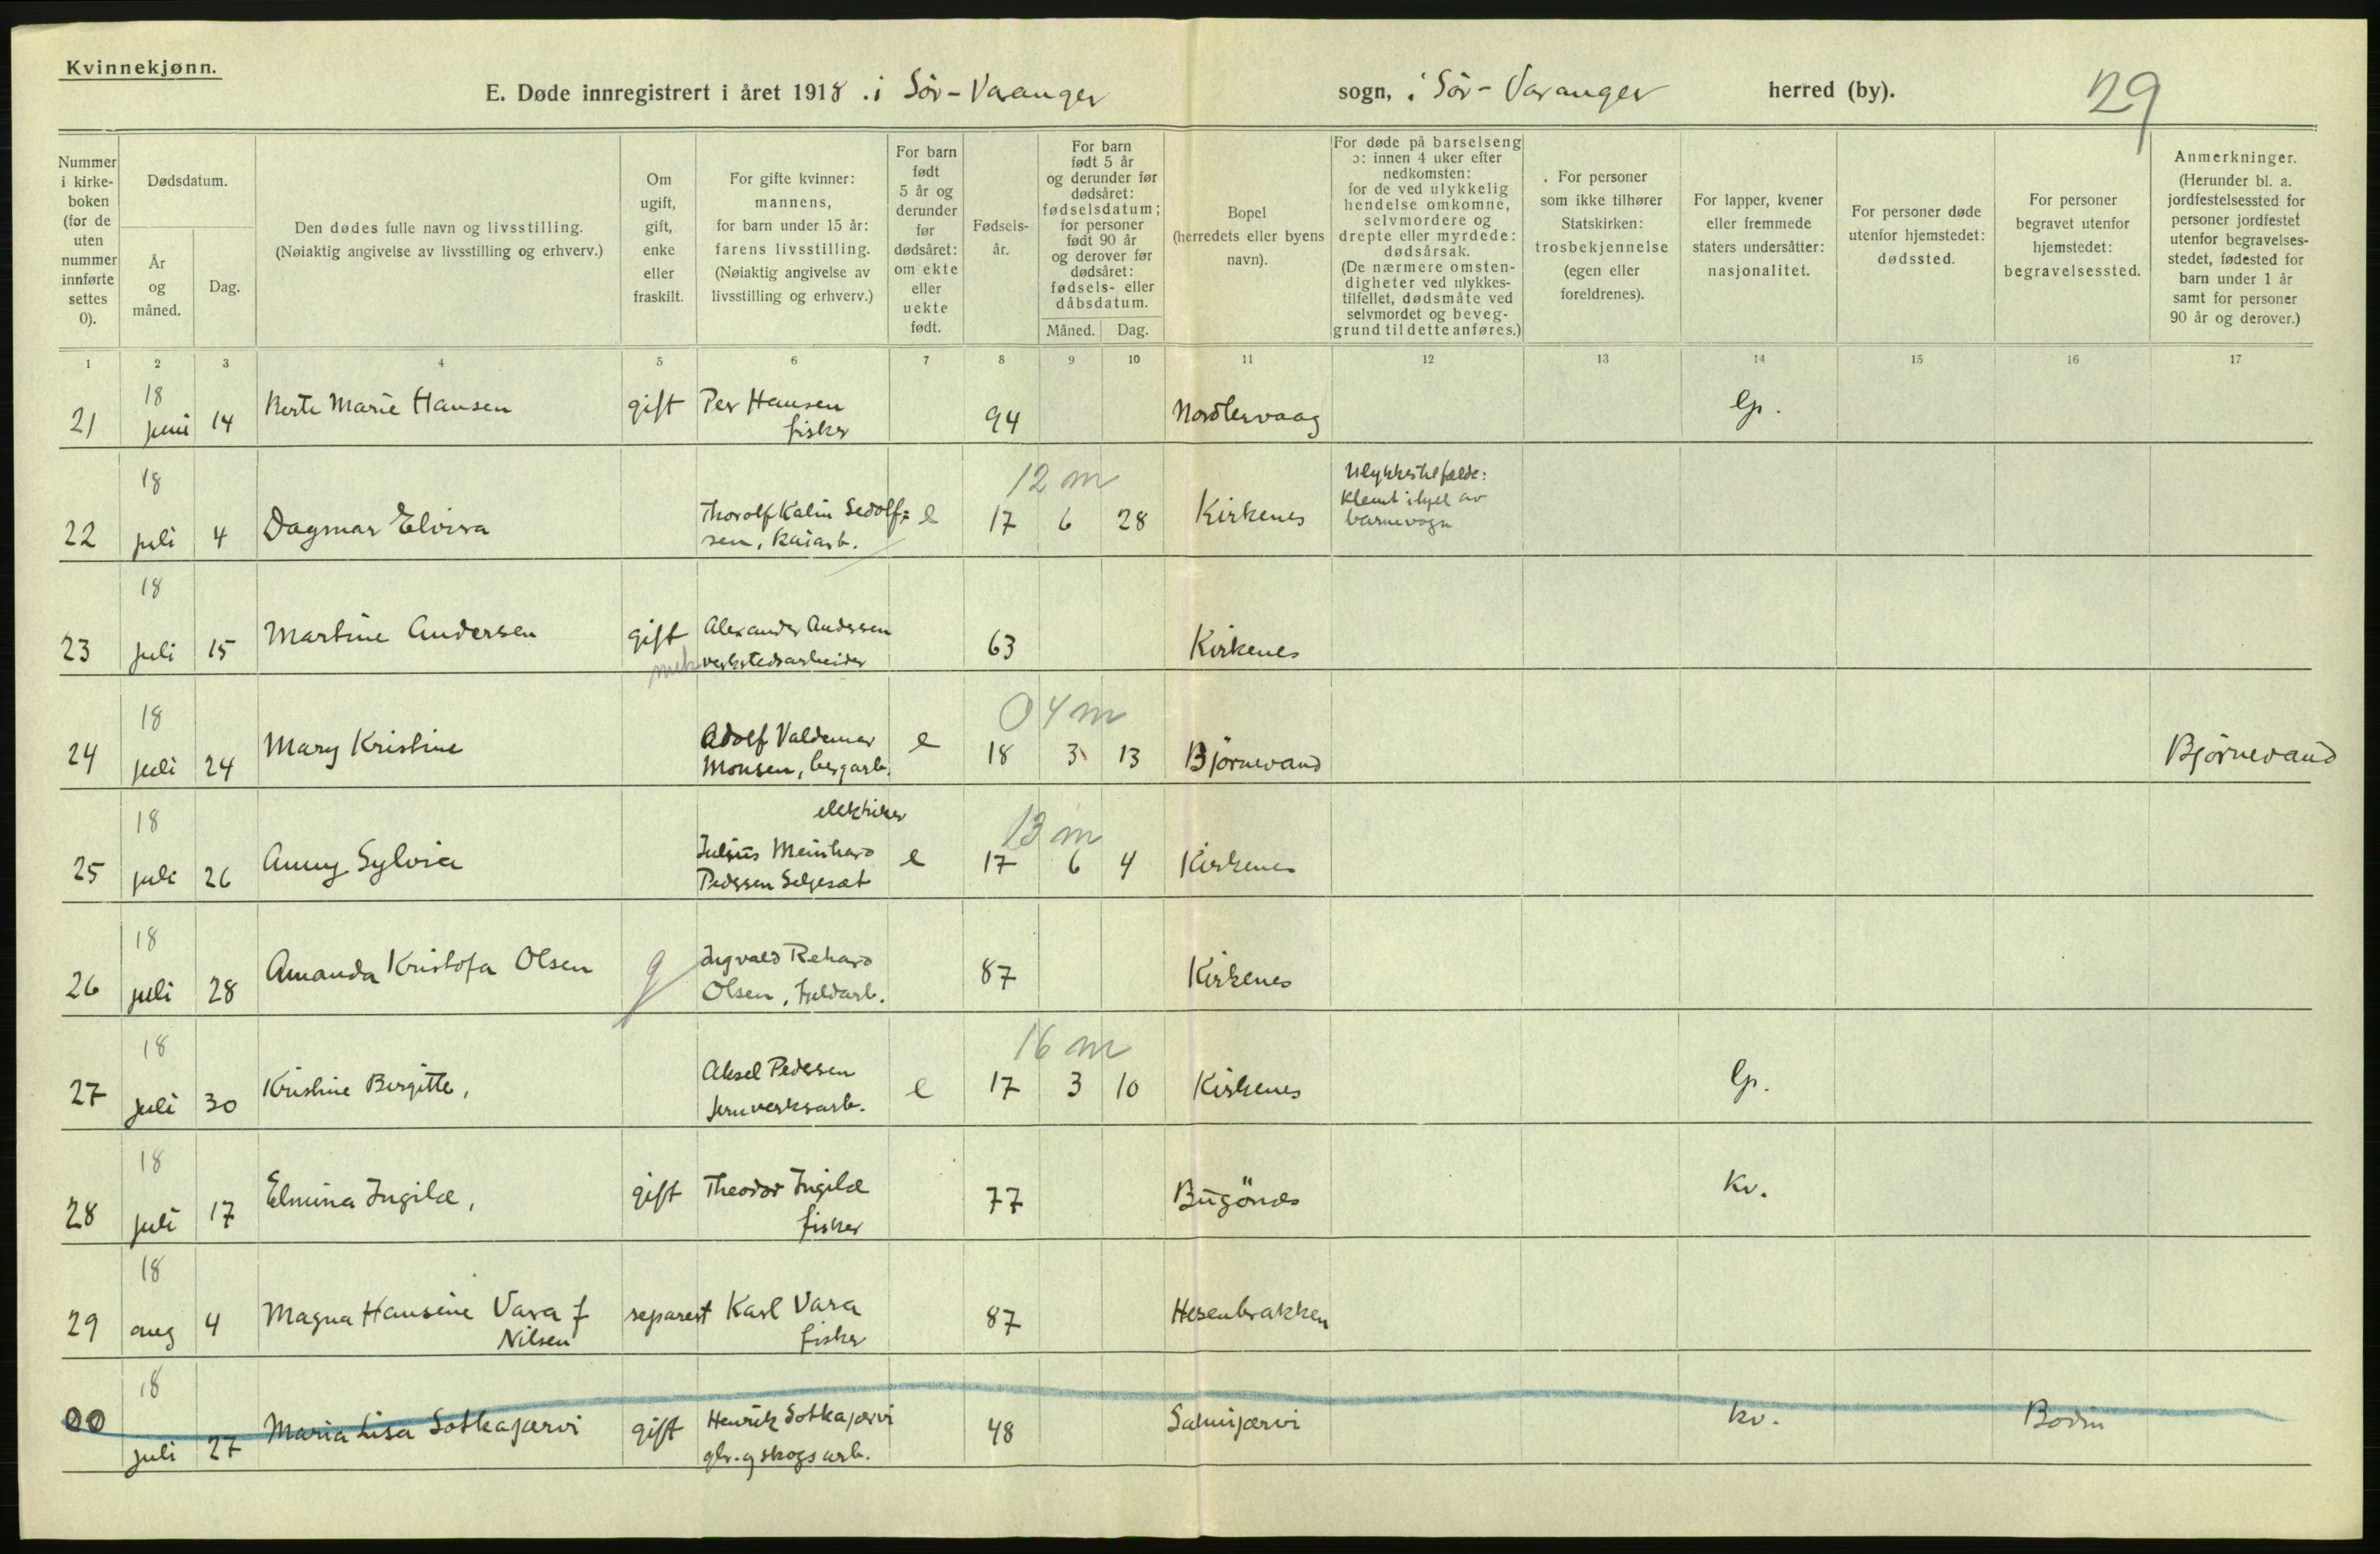 Kvinnekjønn.
E. Døde innregistrert i året 1918 . i Sör-Varanger sogn, i Sör-Varanger herred (by). 29
Nummer i kirkeboken (for de uten nummer innførte settes 0).
Dødsdatum.
År og måned.
Dag.
Den dødes fulle navn og livsstilling.
(Nøiaktig angivelse av livsstilling og erhverv.)
Om ugift, gift, enke eller fraskilt.
For gifte kvinner: mannens, for barn under 15 år: farens livsstilling. (Nøiaktig angivelse av livsstilling og erhverv.)
For barn født 5 år og derunder før dødsåret: om ekte eller uekte født.
Fødsels-år.
For barn født 5 år og derunder før dødsåret: fødselsdatum; for personer født 90 år og derover før dødsåret: fødsels- eller dåbsdatum.
Måned. Dag.
Bopel (herredets eller byens navn).
For døde på barselseng ɔ: innen 4 uker efter nedkomsten: for de ved ulykkelig hendelse omkomne, selvmordere og drepte eller myrdede: dødsårsak. (De nærmere omsten-digheter ved ulykkes-tilfellet, dødsmåte ved selvmordet og beveg-grund til dette anføres.)
. For personer som ikke tilhører Statskirken: trosbekjennelse (egen eller foreldrenes).
For lapper, kvener eller fremmede staters undersåtter: nasjonalitet.
For personer døde utenfor hjemstedet: dødssted.
For personer begravet utenfor hjemstedet: begravelsessted.
Anmerkninger. (Herunder bl. a. jordfestelsessted for personer jordfestet utenfor begravelses-stedet, fødested for barn under 1 år samt for personer 90 år og derover.)
1 2 3 4 5 6 7 8 9 10 11 12 13 14 15 16 17
18
21 juni 14 Berte Marie Hansen gift Per Hansen fisker 94 lp.
18 12 m Ulykkestilfælde:
Klemt ihjel av
barnevogn
22 juli 4 Dagmar Elvira Thorolf Kalin Sedolf=
sen, kaiarb. e 17 6 28 Kirkenes
18
23 juli 15 Martine Andersen gift Alexander Andersen
mek verkstedsarbeider 63 Kirkenes
18 04 m
24 juli 24 Mary Kristine Adolf Valdemar
Monsen, bergarb. e 18 3 13 Björnevand Björnevand
18 elektriker 13 m
25 juli 26 Anny Sylvia Julius Meinhard
Pedersen e 17 6 4 Kirkenes
18
26 juli 28 Amanda Kristofa Olsen g Ingvald Rehard
Olsen, 87 Kirkenes
18 16 m
27 juli 30 Kristine Bergitte, Aksel Pedersen
jernverksarb. e 17 3 10 Kirkenes lp.
18
28 juli 17 Elmina Ingilæ, gift Theodor Ingilæ
fisker 77 Bugönes kv.
18
29 aug 4 Magna Hansine Vara f
Nilsen separert Karl Vara
fisker 87
18
00 juli 27 Maria Lisa Sotkajærvi gift Henrik Sotkajærvi
gbr. og skogsarb. 48 Salmijærvi kv. Bodin